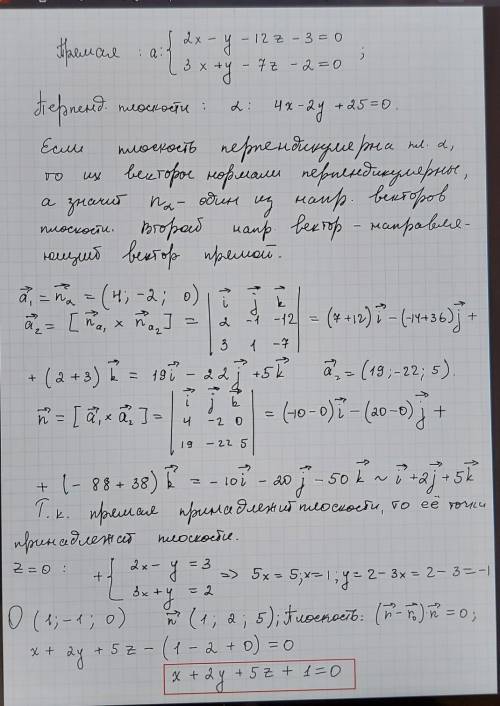 Прямая : a: { 2x - y - 12z - 3 = 0
3x + y - 7z - 2 = 0 ;
Перпенд. плоскости : α : 4x - 2y + 25 = 0.
Если плоскость перпендикулярна пл. α,
то их векторы нормали перпендикулярны,
а значит n_α - один из напр. векторов
плоскости. Второй напр вектор - направля-
ющий вектор прямой.
a⃗₁ = n⃗_α = (4; -2; 0)
a⃗₂ = [n⃗_a₁ × n⃗_a₂] = | i⃗ j⃗ k⃗ | 2 -1 -12 | 3 1 -7 | = (7+12) i⃗ - (-14+36) j⃗ +
+ (2+3) k⃗ = 19i⃗ - 22j⃗ + 5k⃗ a⃗₂ = (19; -22; 5).
n⃗ = [a⃗₁ × a⃗₂] = | i⃗ j⃗ k⃗ | 4 -2 0 | 19 -22 5 | = (-10-0) i⃗ - (20-0) j⃗ +
+ (-88+38) k⃗ = -10i⃗ - 20j⃗ - 50k⃗ ~ i⃗ + 2j⃗ + 5k⃗
Т.к. прямая принадлежит плоскости, то её точки
принадлежат плоскости.
z=0 : + { 2x - y = 3
3x + y = 2 => 5x = 5; x=1; y = 2-3x = 2-3 = -1
O (1; -1; 0) n⃗ (1; 2; 5); Плоскость: (r⃗ - r⃗₀) n⃗ = 0;
x + 2y + 5z - (1 - 2 + 0) = 0
x + 2y + 5z + 1 = 0